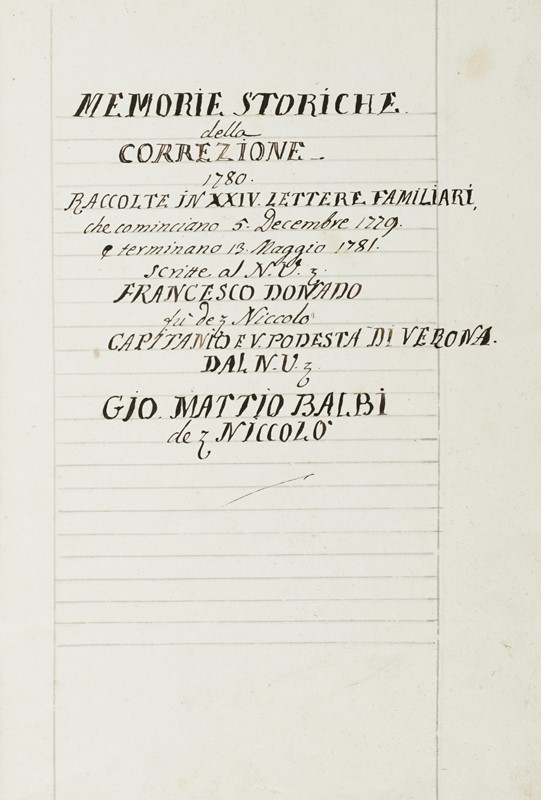 MEMORIE STORICHE
della
CORREZIONE
1780.
RACCOLTE IN XXIV. LETTERE FAMILIARI,
che cominciano 5. Decembre 1779.
e terminano 13. Maggio 1781.
scritte al N. U. z.
FRANCESCO DONADO
fù de z Niccolò
CAPITANIO E V. PODESTÀ DI VERONA.
DAL N. U. z
GIO. MATTIO BALBI
de z NICCOLÒ